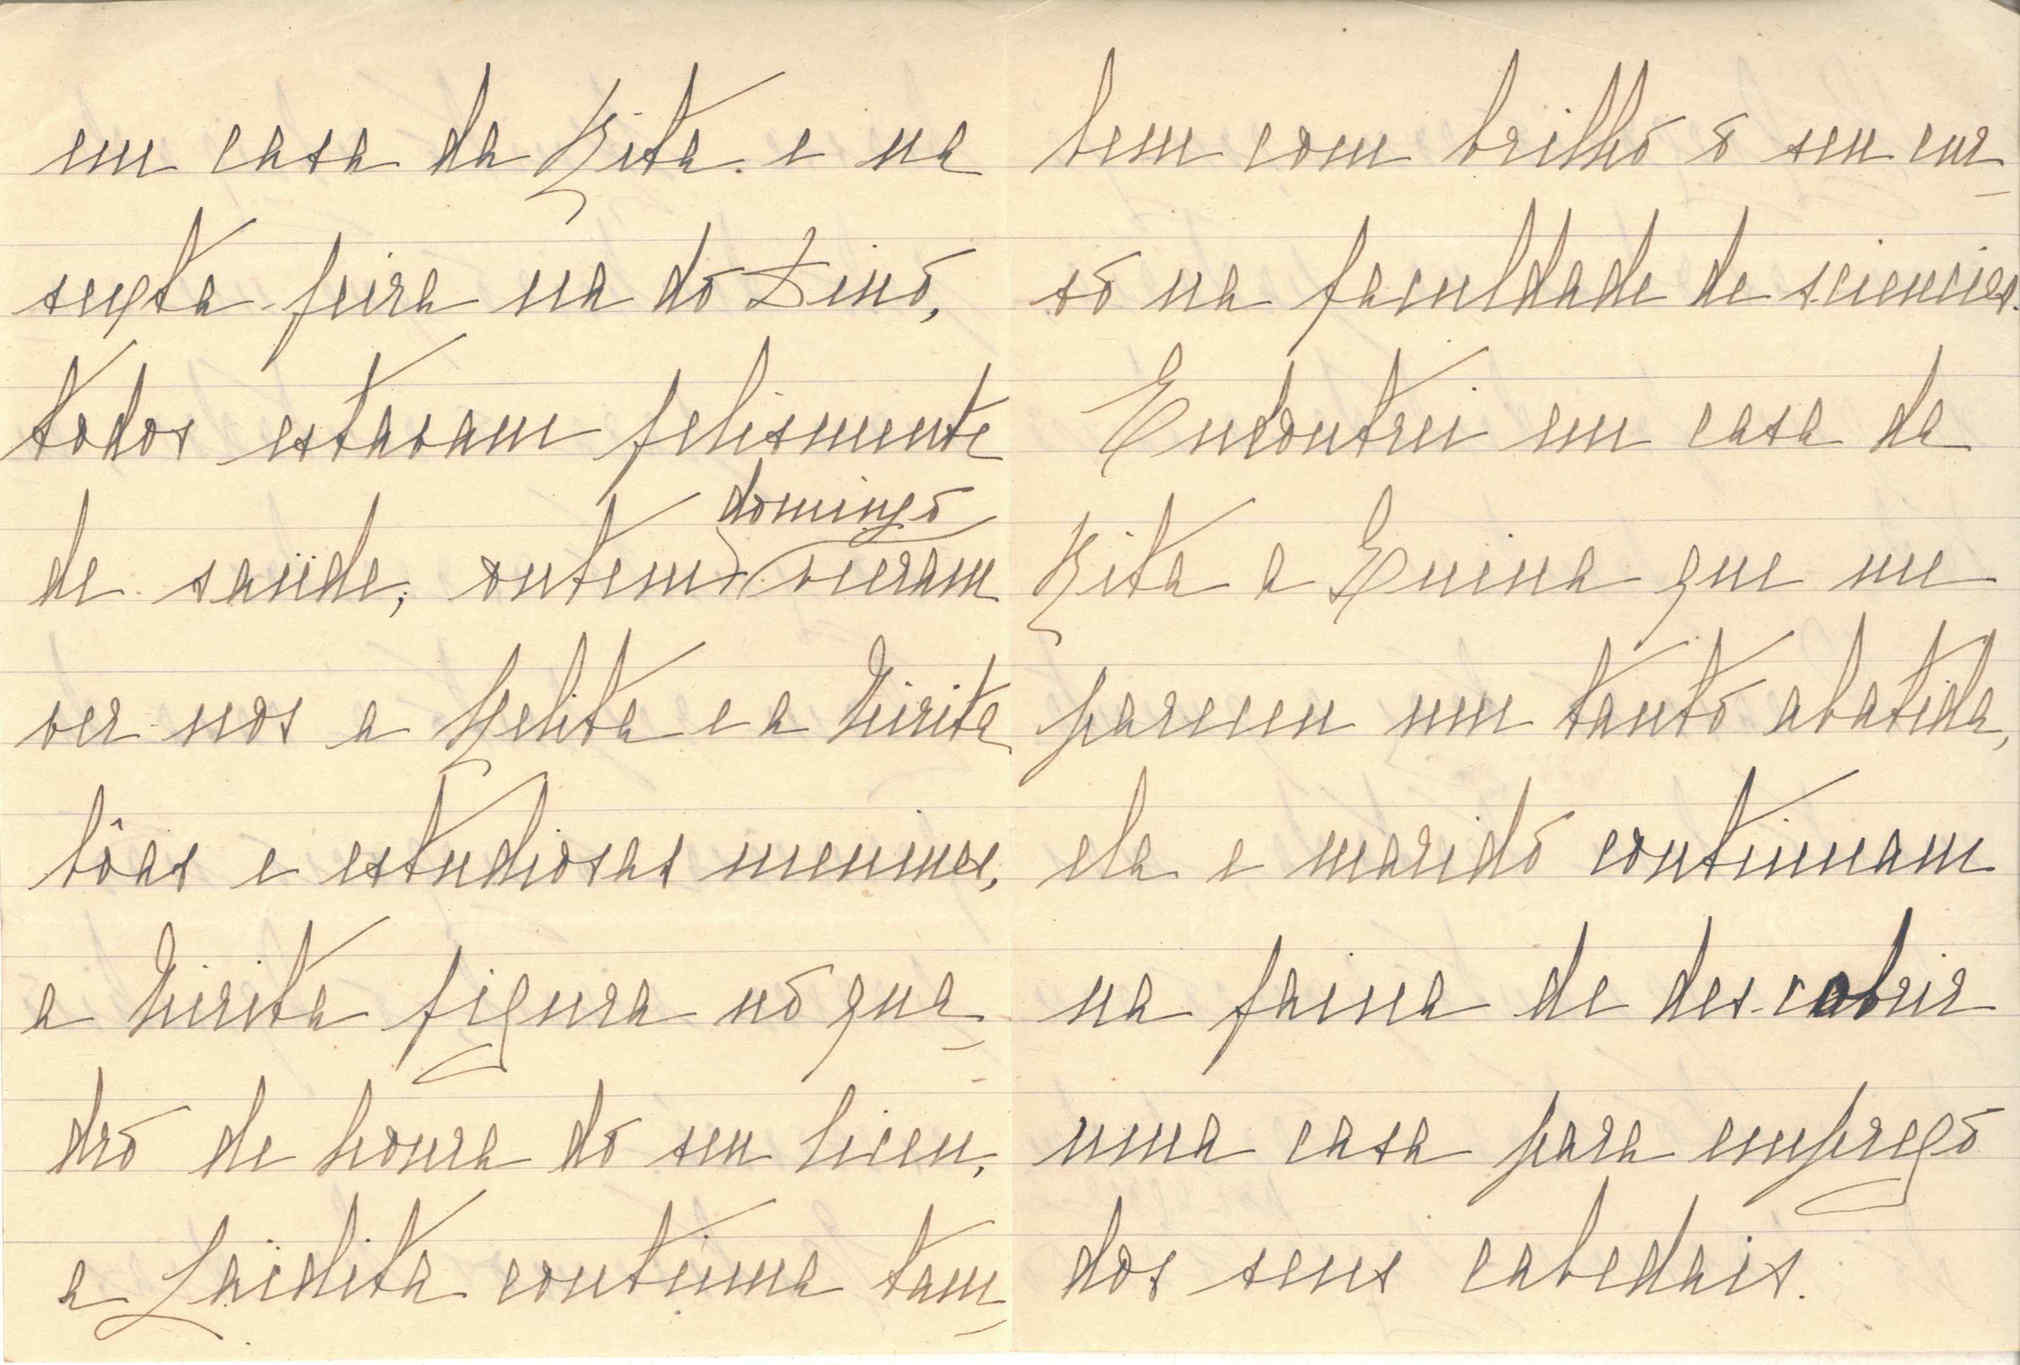 em casa da Zita e na
sexta-feira na do Dino,
todos estavam felismente
domingo
de saüde, ontem vieram
ver-nos a Helita e a Mirita
bôas e estudiosas meninas,
a Mirita figura no qua_
dro de honra do seu liceu,
a Laïdita continua tam_
bem com brilho o seu cur_
so na faculdade de sciencias.
Encontrei em casa da
Zita a Enina que me
pareceu um tanto abatida,
ela e marido continuam
na faina de descobrir
uma casa para emprego
dos seus cabedais.